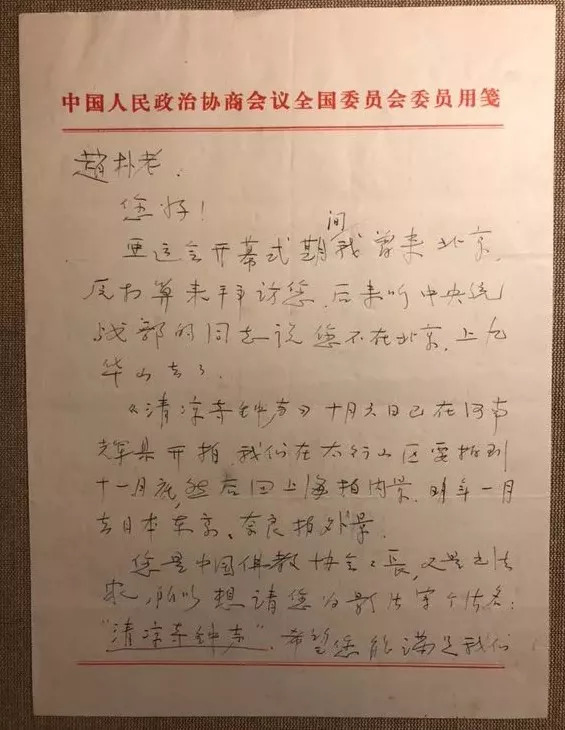 中国人民政治协商会议全国委员会委员用笺
趙朴老：
您好！
亚运会开幕式期间我曾来北京，
原打算来拜访您，后来听中央统
战部的同志说您不在北京，上九
华山去了。
《清凉寺钟声》十月六日已在河南
辉县开拍，我们在太行山区要拍到
十一月底，然后回上海拍内景，明年一月
去日本东京、奈良拍外景。
您是中国佛教协会々长，又是书法
家，所以想请您为影片写个片名：
“清凉寺钟声”，希望您能满足我们